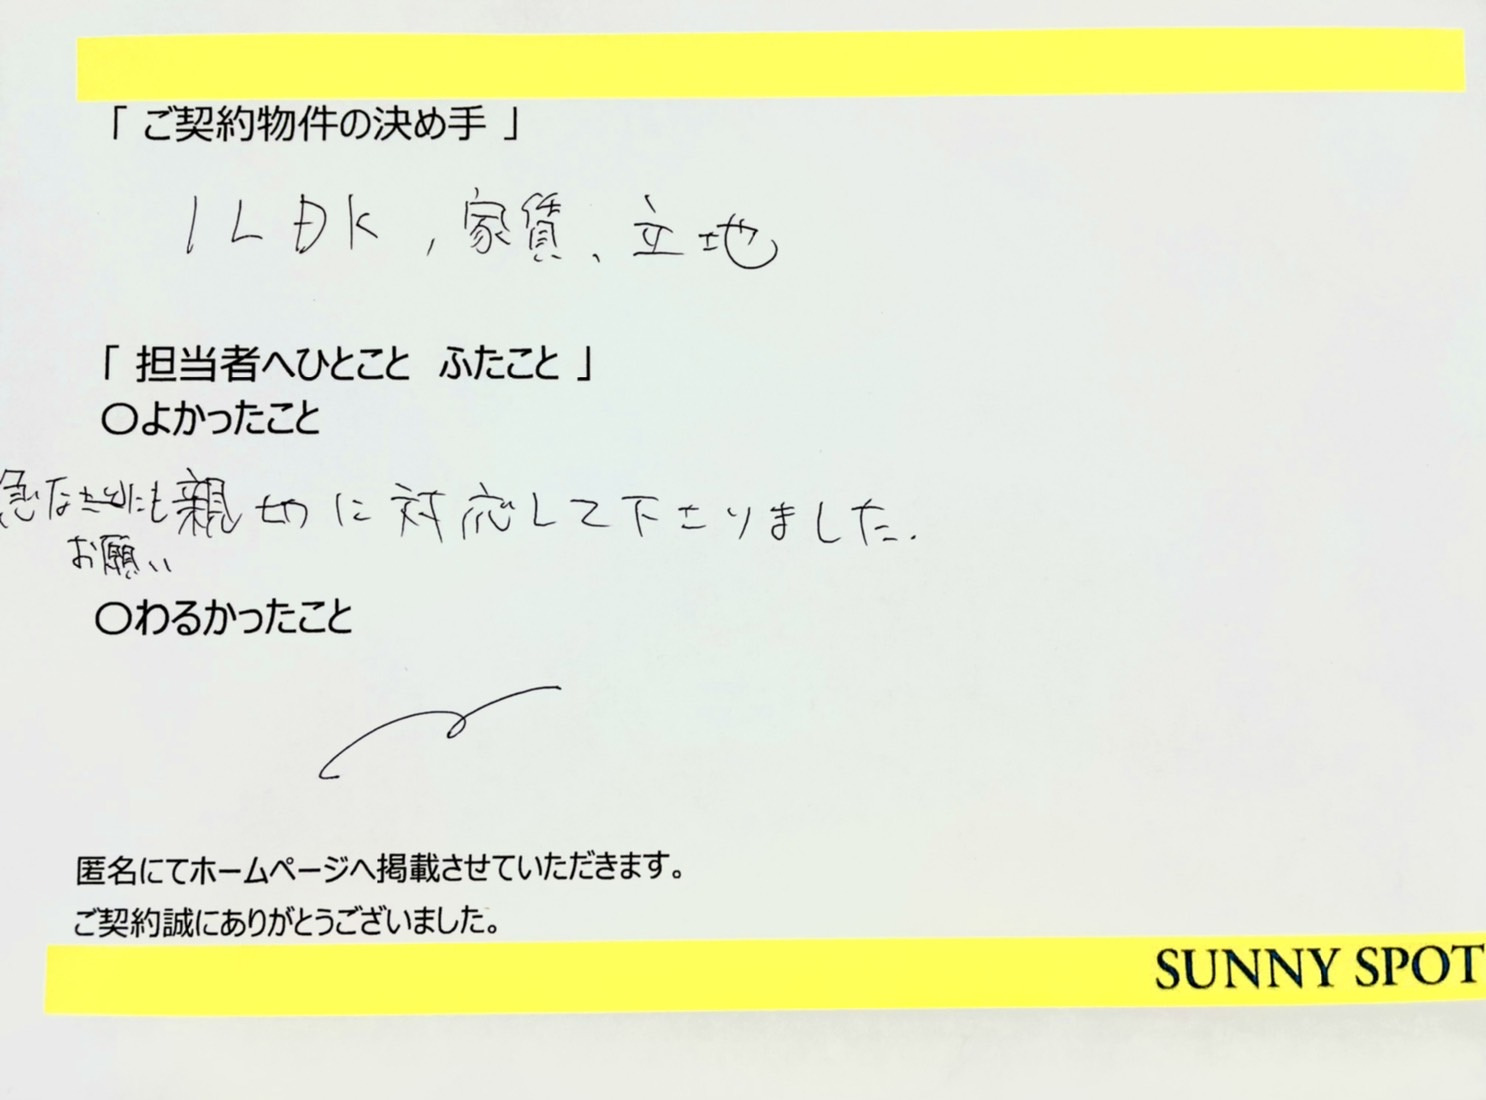 「 ご契約物件の決め手 」
1LDK, 家賃、立地
「 担当者へひとこと ふたこと 」
〇よかったこと
急なにも親切に対応して下さりました.
お願い
〇わるかったこと
匿名にてホームページへ掲載させていただきます。
ご契約誠にありがとうございました。
SUNNY SPOT